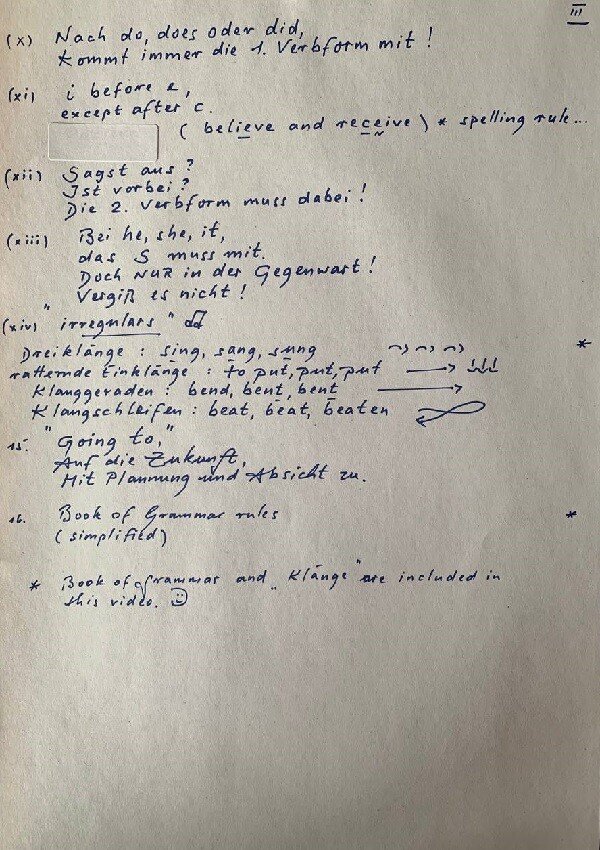 III
(x) Nach do, does oder did,
kommt immer die 1. Verbform mit!
(xi) i before e,
except after c.
(believe and receive) * spelling rule...
(xii) Sagst aus?
Ist vorbei?
Die 2. Verbform muss dabei!
(xiii) Bei he, she, it,
das S muss mit.
Doch NUR in der Gegenwart!
Vergiß es nicht!
(xiv) "irregulars"
Dreiklänge: sing, sang, sung *
ratternde Einklänge: to put, put, put
Klanggeraden: bend, bent, bent
Klangschleifen: beat, beat, beaten
15. "Going to,"
Auf die Zukunft,
Mit Plannung und Absicht zu.
16. Book of Grammar rules *
(simplified)
* Book of Grammar and "Klänge" are included in
this video. ☺